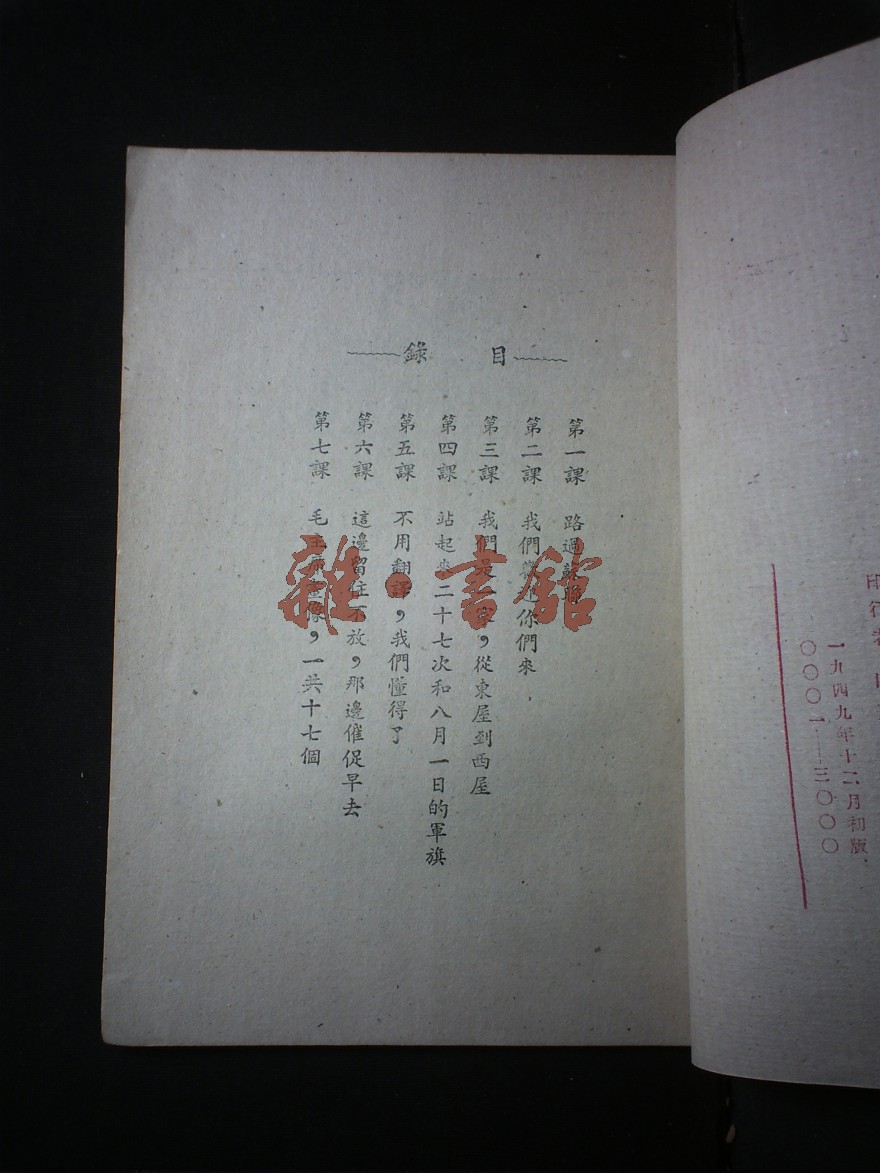 印行者
一九四九年十二月初版
〇〇〇一——三〇〇〇
目 錄
第一課 路過蘇聯
第二課 我們 你們來
第三課 我們是一家，從東屋到西屋
第四課 站起來二十七次和八月一日的軍旗
第五課 不用翻譯，我們懂得了
第六課 這邊留住不放，那邊催促早去
第七課 毛主席畫像，一共十七個
雜·書館